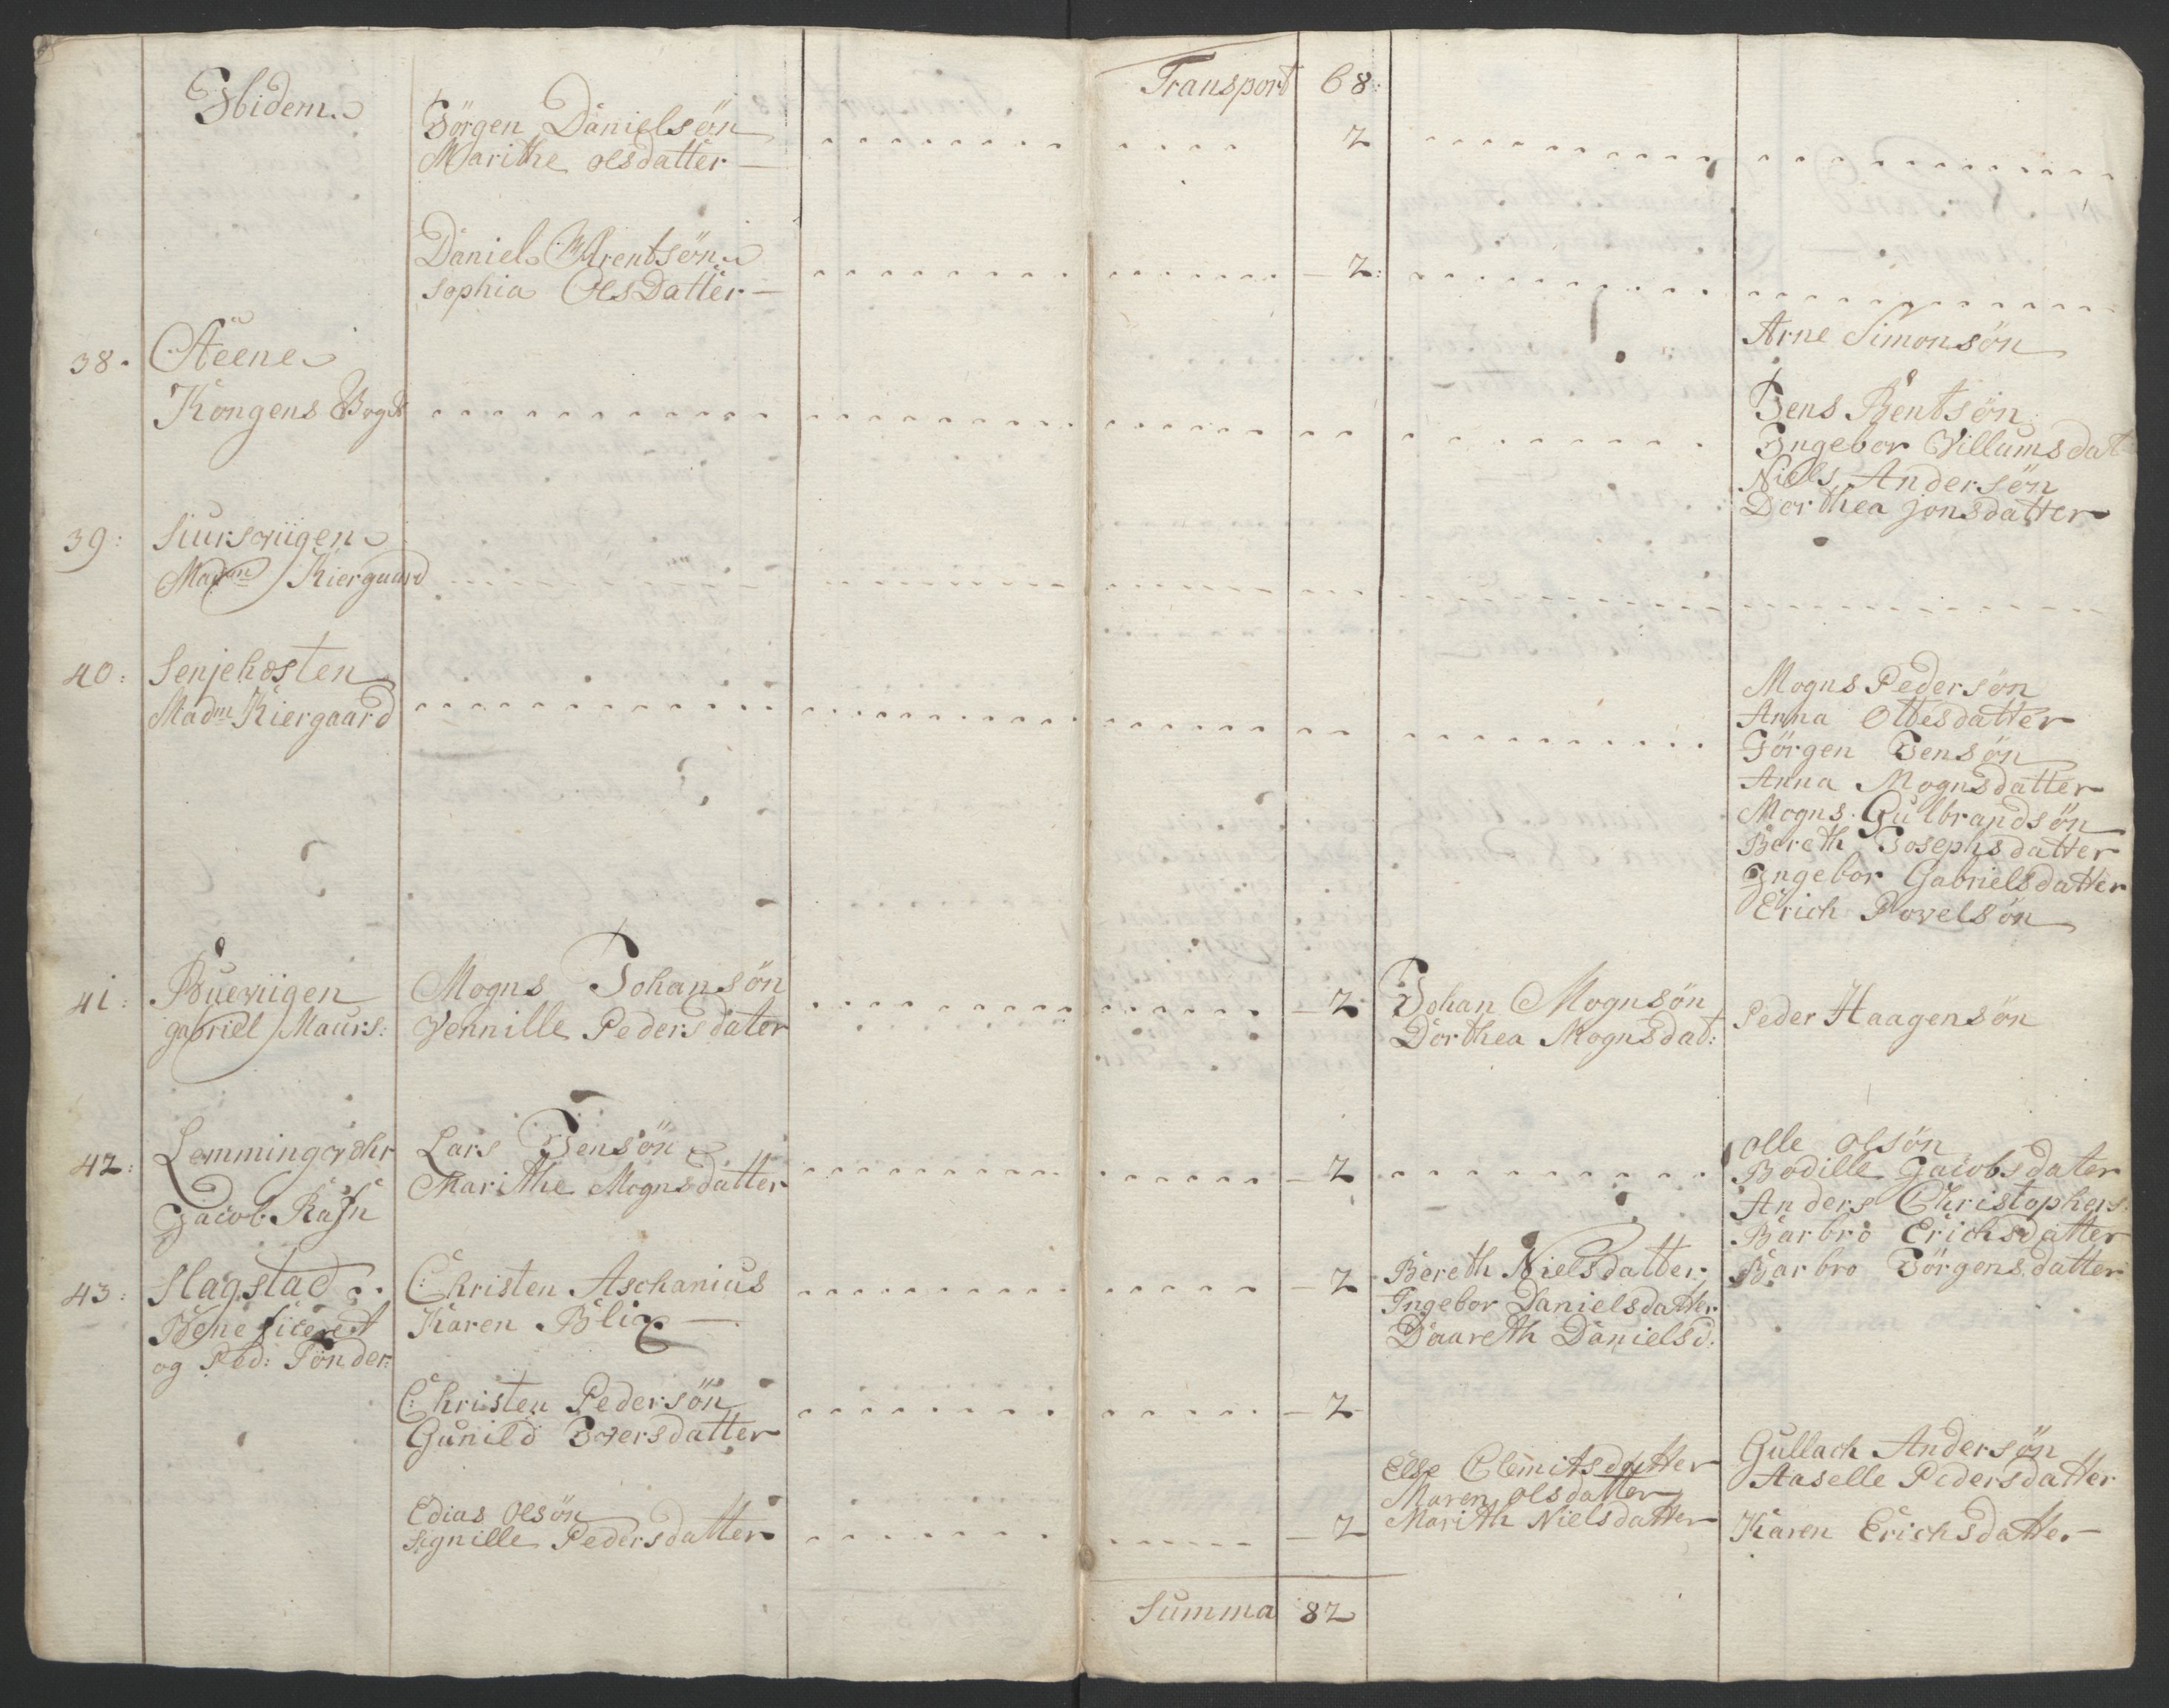 Transport 68:
Ibidem
Jörgen Danielsön
Marithe olsdatter — 2
Daniel Arentsön
Sophia OlsDatter — 2:
38. Steene
Kongens Bogd
Arne Simonsön
Jens Bentsön
Ingebor Villumsdat
Niels Andersön
Dorthea jonsdatter
39: Siursviigen
Madm Kiergaard
40: Senjehosten
Madm Kiergaard
Mogns Pedersön
Anna Ottesdatter
Jörgen Jensön
Anna Mognsdatter
Mogns Gulbrandsön
Bereth Josephsdatter
Ingebor Gabrielsdatter
Erich Povelsön
41: Bueviigen
gabriel Maurs:
Mogns Johansön
Vennille Pedersdater
— 2
Johan Mognsön
Dorthea Mognsdat:
Peder Haagensön
42: Lemmingvähr
Jacob Rasn
Lars Jensön
Marithe Mognsdatter
— 2
olle olsön
Bodille Jacobsdater
Anders Christophers:
Barbro Erichsdatter
Barbro Jörgensdatter
43: Slagstad
Beneficeret
og Ped: Tönder:
Christen Aschanius
Karen Blix —
— 2
Bereth Nielsdatter
Ingebor Danielsdatter
Daareth Danielsd.
Christen Pedersön
Gunild Iversdatter
— 2
Edias Olsön
Signille Pedersdatter
— 2
Else Clemitsdatter
Maren olsdatter
Marith Nielsdatter
Gullach Andersön
Aaselle Pedersdatter
Karen Erichsdatter
Summa 82